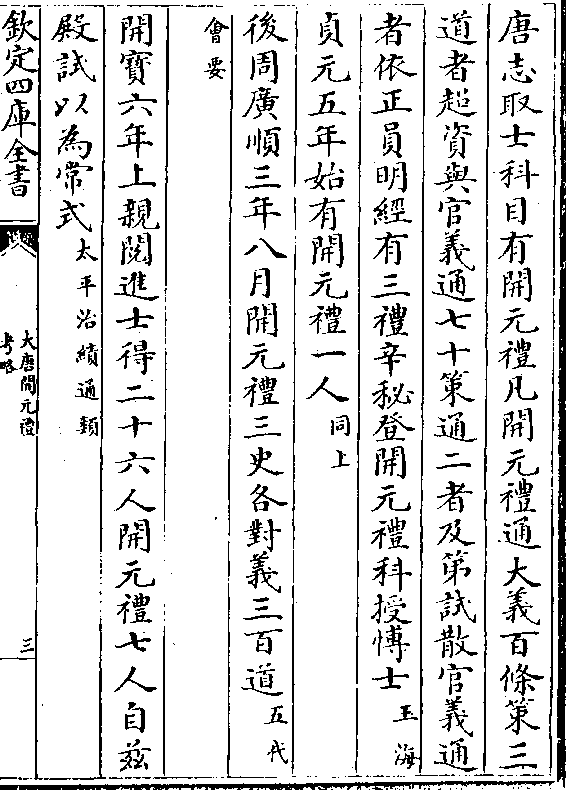 唐志取士科目有開元禮凡開元禮通大義百條策三
道者超資與官義通七十策通二者及第試散官義通
者依正員明經有三禮辛秘登開元禮科授愽士玉海
貞元五年始有開元禮一人同上
後周廣順三年八月開元禮三史各對義三百道五代
會要
開寳六年上親閱進士得二十六人開元禮七人自兹
殿試以為常式太平治績通類
欽定四庫全書
大唐開元禮
考略
三